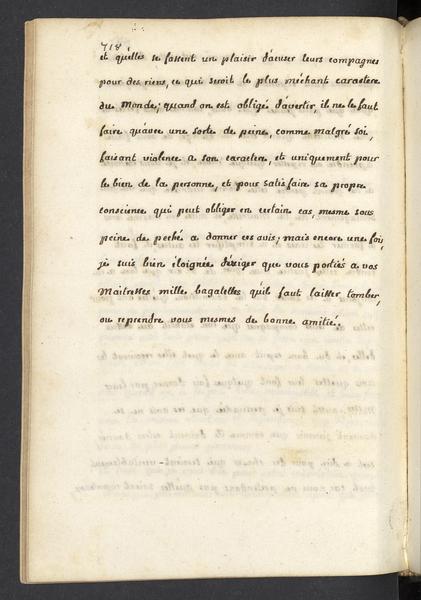 718
et qu'elles se fassent un plaisir d'acuser leurs compagnes
pour des riens, ce qui seroit le plus méchant caractere
du monde; quand on est obligé d'avertir, il ne le faut
faire qu'avec une sorte de peine, comme malgré soi,
faisant violence a son caractere, et uniquement pour
le bien de la personne, et pour satisfaire sa propre
conscience qui peut obliger en certain cas, mesme sous
peine de peché a donner ces avis; mais encore une fois,
je suis bien éloignée d'exiger que vous portiés a vos
Maitresses mille bagatelles qu'il faut laisser tomber,
ou reprendre vous mesmes de bonne amitié.